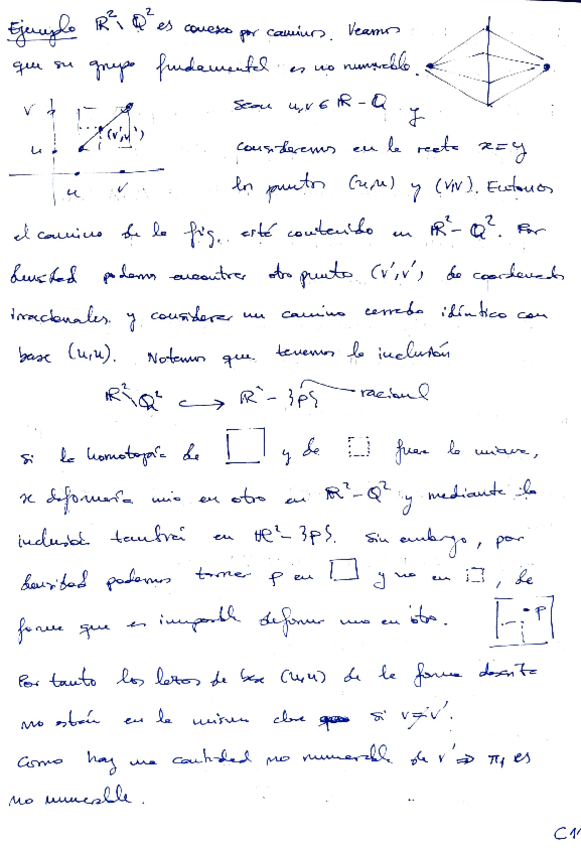 Ejemplo R²\Q² es conexo por caminos. Veamos
que su grupo fundamental es no numerable.
Sean u,v ∈ R - Q y
consideremos en la recta x=y
los puntos (u,u) y (v,v). Entonces
el camino de la fig. está contenido en R² - Q². Por
densidad podemos encontrar otro punto (v',v') de coordenadas
irracionales y considerar un camino cerrado idéntico con
base (u,u). Notemos que tenemos la inclusión
R²\Q² ↪ R² - {p} racional
si la homotopía de □ y de □ fuera la misma,
se deformaría uno en otro en R² - Q² y mediante la
inclusión también en R² - {p}. Sin embargo, por
densidad podemos tomar p en □ y no en □, de
forma que es imposible deformar uno en otro.
Por tanto los lazos de base (u,u) de la forma descrita
no están en la misma clase si v≠v'.
Como hay una cantidad no numerable de v' ⇒ π₁ es
no numerable.
v
u
(v',v')
u
v
p